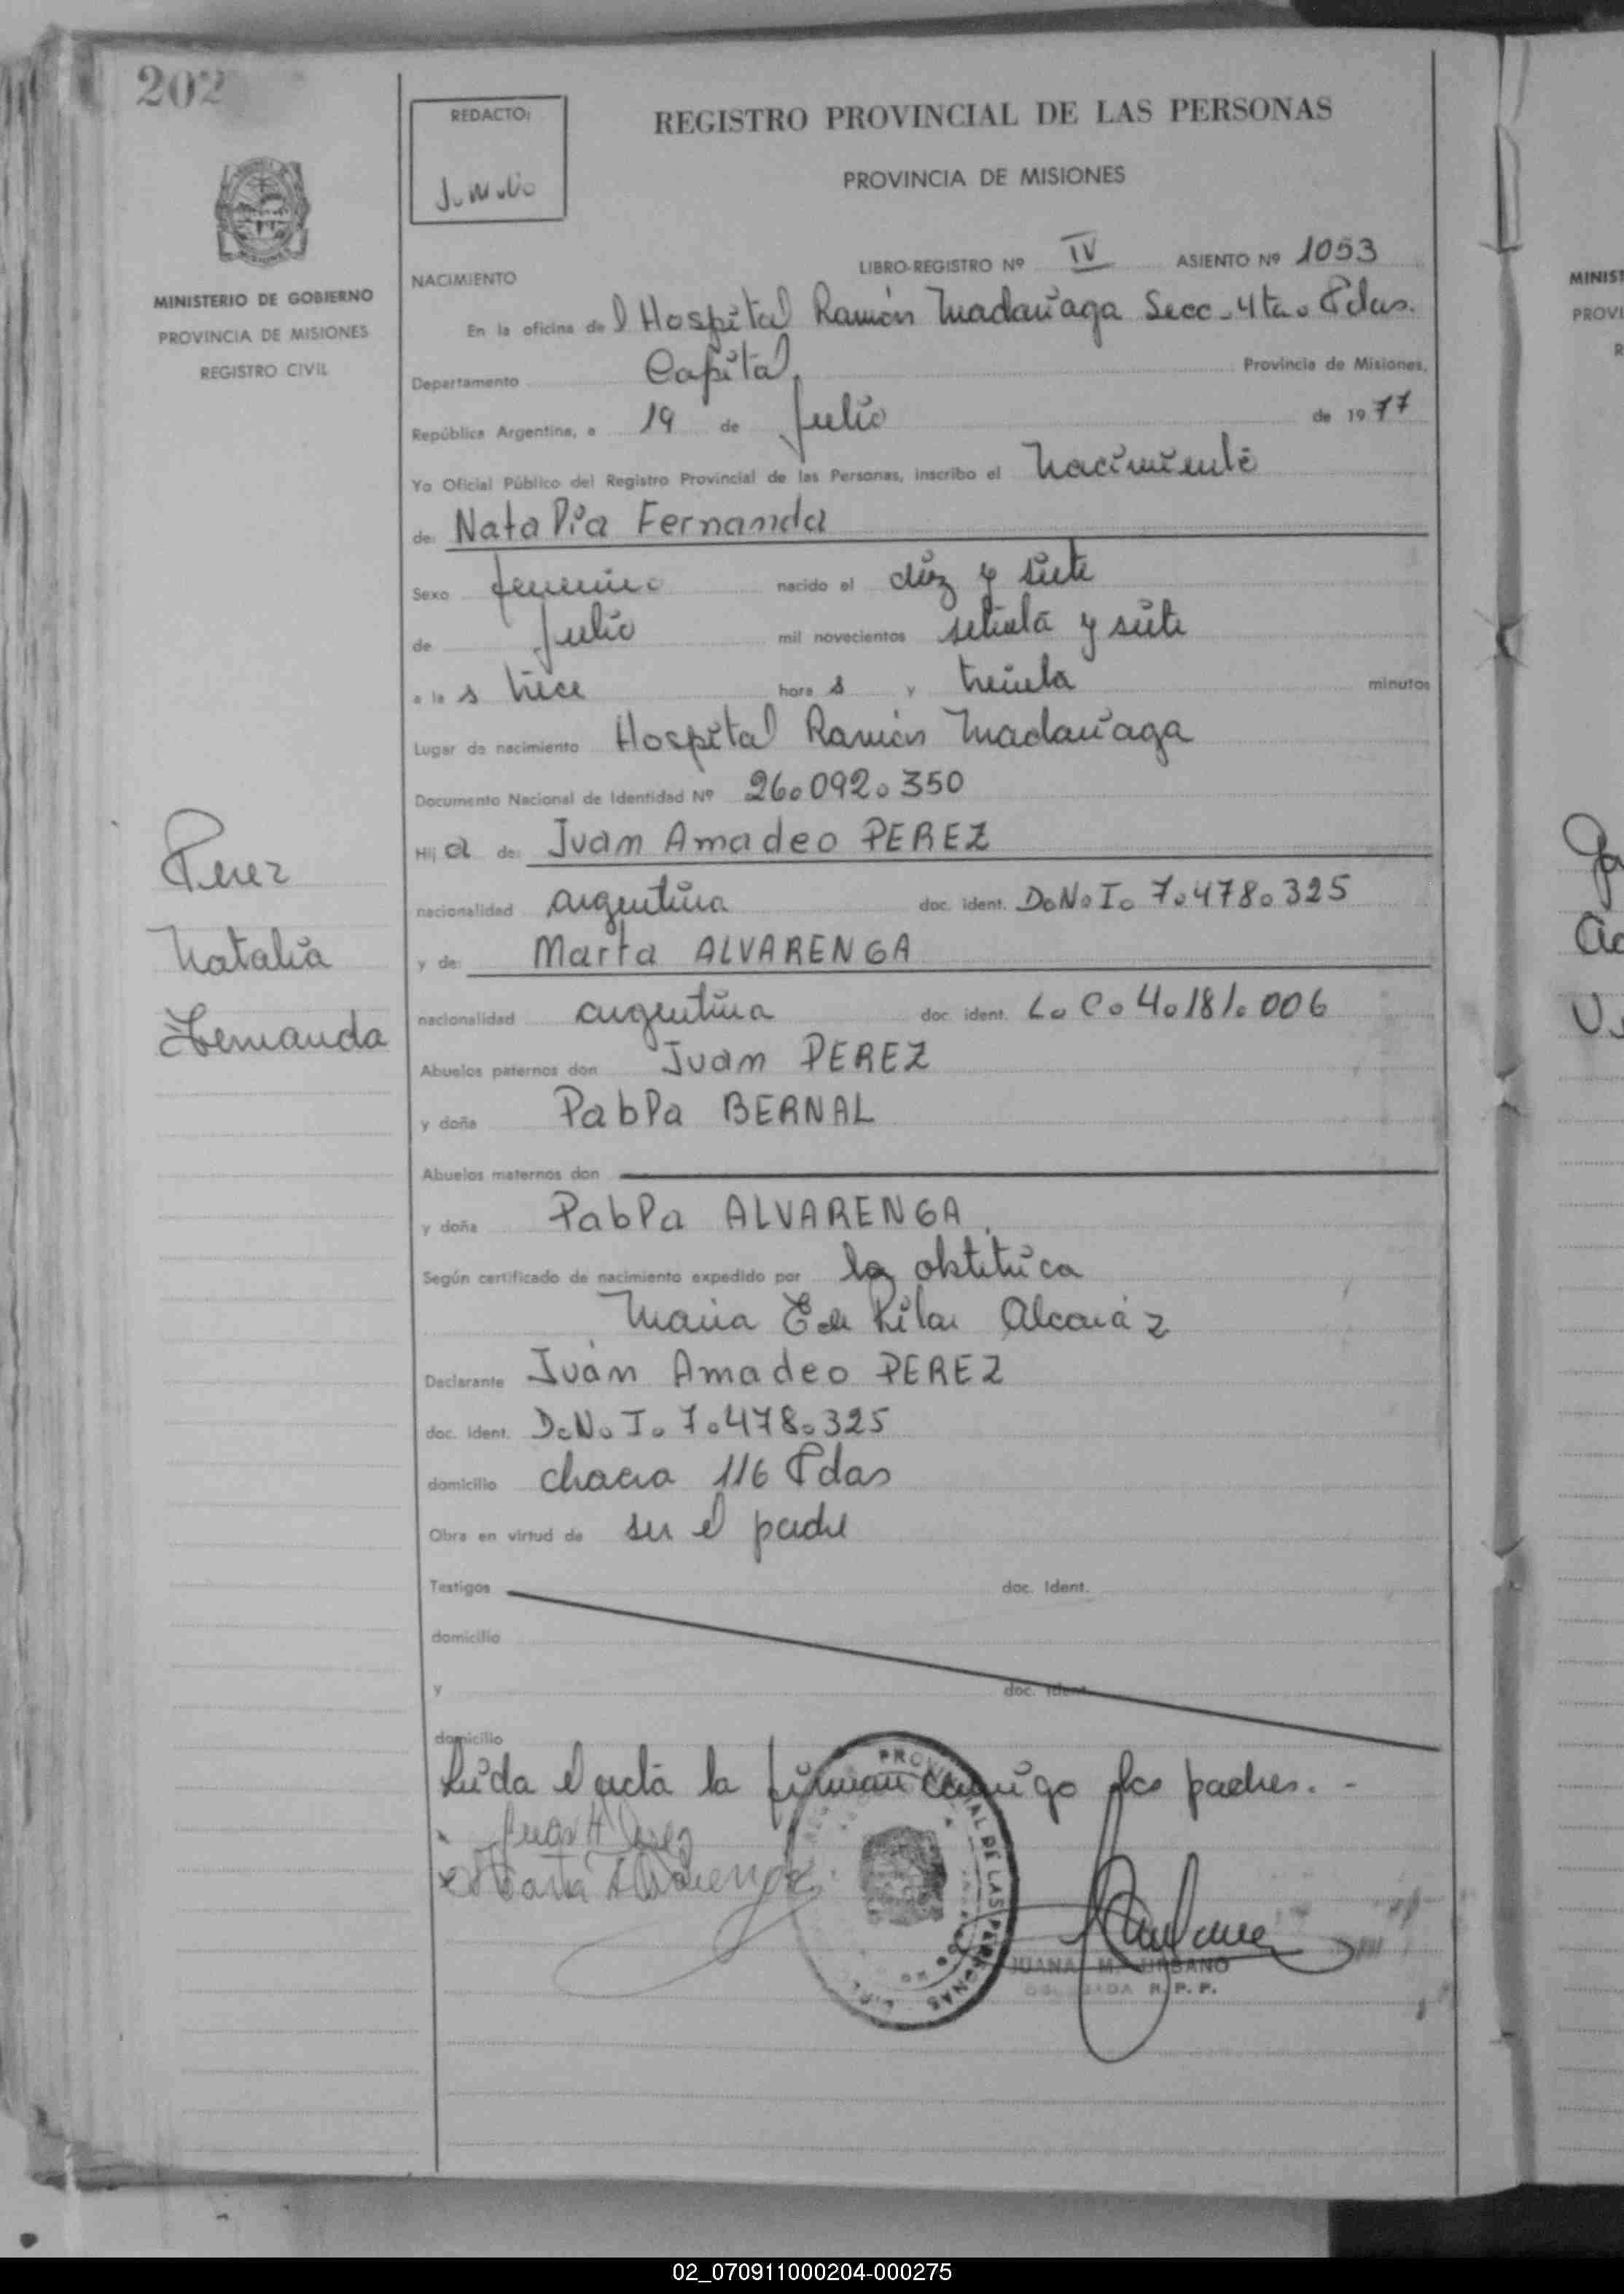 202
REDACTO:
J. M. U.
REGISTRO PROVINCIAL DE LAS PERSONAS
PROVINCIA DE MISIONES
MINISTERIO DE GOBIERNO
PROVINCIA DE MISIONES
REGISTRO CIVIL
NACIMIENTO LIBRO-REGISTRO Nº IV ASIENTO Nº 1053
En la oficina del Hospital Ramón Madariaga Secc. 4ta. Pdas.
Departamento Capital, Provincia de Misiones,
República Argentina, a 19 de Julio de 1977
Yo Oficial Público del Registro Provincial de las Personas, inscribo el Nacimiento
de: Natalia Fernanda
Sexo femenino nacido el diez y siete
de Julio mil novecientos setenta y siete
a las trece horas y treinta minutos
Lugar de nacimiento Hospital Ramón Madariaga
Documento Nacional de Identidad Nº 26.092.350
Hija de: Juan Amadeo PEREZ
nacionalidad argentina doc. ident. D.N.I. 7.478.325
y de: Marta ALVARENGA
nacionalidad argentina doc. ident. L.C. 4.181.006
Abuelos paternos don Juan PEREZ
y doña Pabla BERNAL
Abuelos maternos don
y doña Pabla ALVARENGA
Según certificado de nacimiento expedido por la obstétrica
María E de Pilar Alcaráz
Declarante Juan Amadeo PEREZ
doc. ident. D.N.I. 7.478.325
domicilio chacra 116 Pdas
Obra en virtud de ser el padre
Testigos doc. Ident.
domicilio
y doc. Ident.
domicilio
Leída el acta la firman conmigo los padres. -
Juan A Perez
Marta Alvarenga
JUANA M. URBANO
R. P. P.
PROVINCIAL DE LAS PERSONAS
Perez
Natalia
Fernanda
MINIST
PROVI
R
02_070911000204-000275